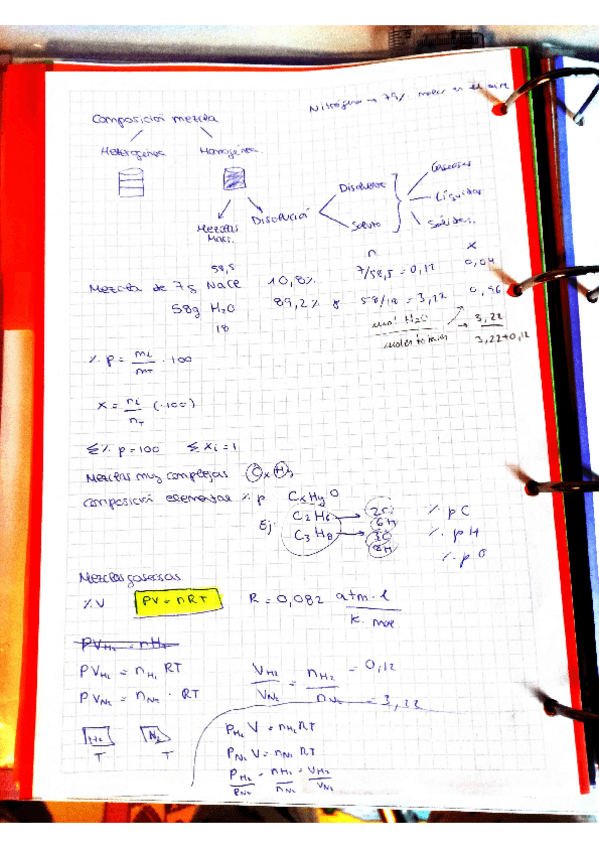 Nitrógeno → 79% molar en el aire
Composición mezcla
Heterogénea Homogénea
Mezclas
Disolución
Disolvente
Soluto
Gaseosas
Líquidas
Sólidas.
n x
58,5
Mezcla de 7g NaCl 10,8% 7/58,5 = 0,12 0,04
58g H₂O 89,2% 58/18 = 3,22 0,96
18
mol H₂O → 3,22
3,22+0,12
% p = mi/mT · 100
x = ni/nT (·100)
Σ% p=100 Σ xi = 1
Mezclas muy complejas CxHy
Composición elemental % p. CxHyO
Ej: C2H6 → 2C 6H % p C
C3H8 → 3C 8H % p H
% p O
Mezclas gaseosas
% V PV = nRT R = 0,082 atm·l / K·mol
PV_H2 = nH
PV_H2 = n_H2 RT V_H2/V_N2 = n_H2/n_N2 = 0,12
PV_N2 = n_N2 · RT = 3,22
H2 N2
T T
P_H2 V = n_H2 RT
P_N2 V = n_N2 RT
P_H2/P_N2 = n_H2/n_N2 = V_H2/V_N2